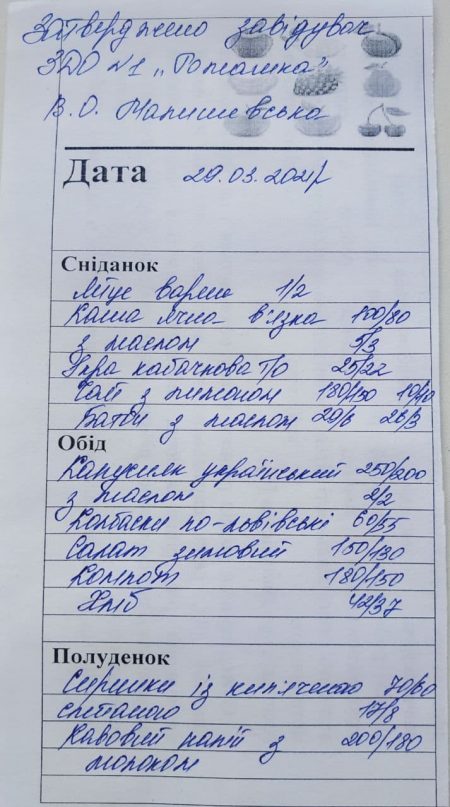 Затверджено завідувач
ЗДО №1 „Ромашка"
В.О. Малишевська
Дата 29.03.2021р
Сніданок
Яйце варене 1/2
Каша ячна в'язка 100/80
з маслом 5/3
Ікра кабачкова т/о 25/22
Чай з лимоном 180/150 10/10
Батон з маслом 29/6 26/3
Обід
Капусняк український 250/200
з маслом 2/2
Ковбаски по-львівські 60/55
Салат зимовий 150/130
Компот 180/150
Хліб 42/37
Полуденок
Сирники із кип'яченою 70/60
сметаною 17/8
Кавовий напій з 200/180
молоком